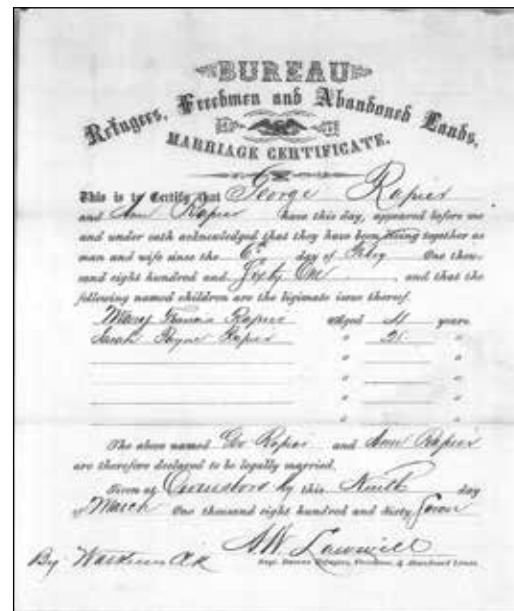 BUREAU
Refugees, Freedmen and Abandoned Lands,
MARRIAGE CERTIFICATE.
This is to Certify that George Rapier
and Ann Rapier have this day, appeared before me
and under oath acknowledged that they have been living together as
man and wife since the 6th day of Feby One thou-
sand eight hundred and Sixty One, and that the
following named children are the legimate issue thereof.
Mary Francis Rapier Aged years
Sarah Payne Rapier " "
" "
" "
" "
" "
The above named Geo Rapier and Ann Rapier
are therefore declared to be legally married.
Given at Owensboro Ky this Ninth day
of March One thousand eight hundred and sixty Seven
A.W. Lawwill
By
Supt. Bureau Refugees, Freedmen, & Abandoned Lands.